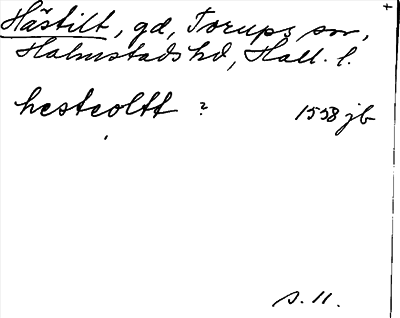 Hästilt, gd, Torups sn,
Halmstads hd, Hall. l.
hesteoltt ? 1558 jb
s. 11.